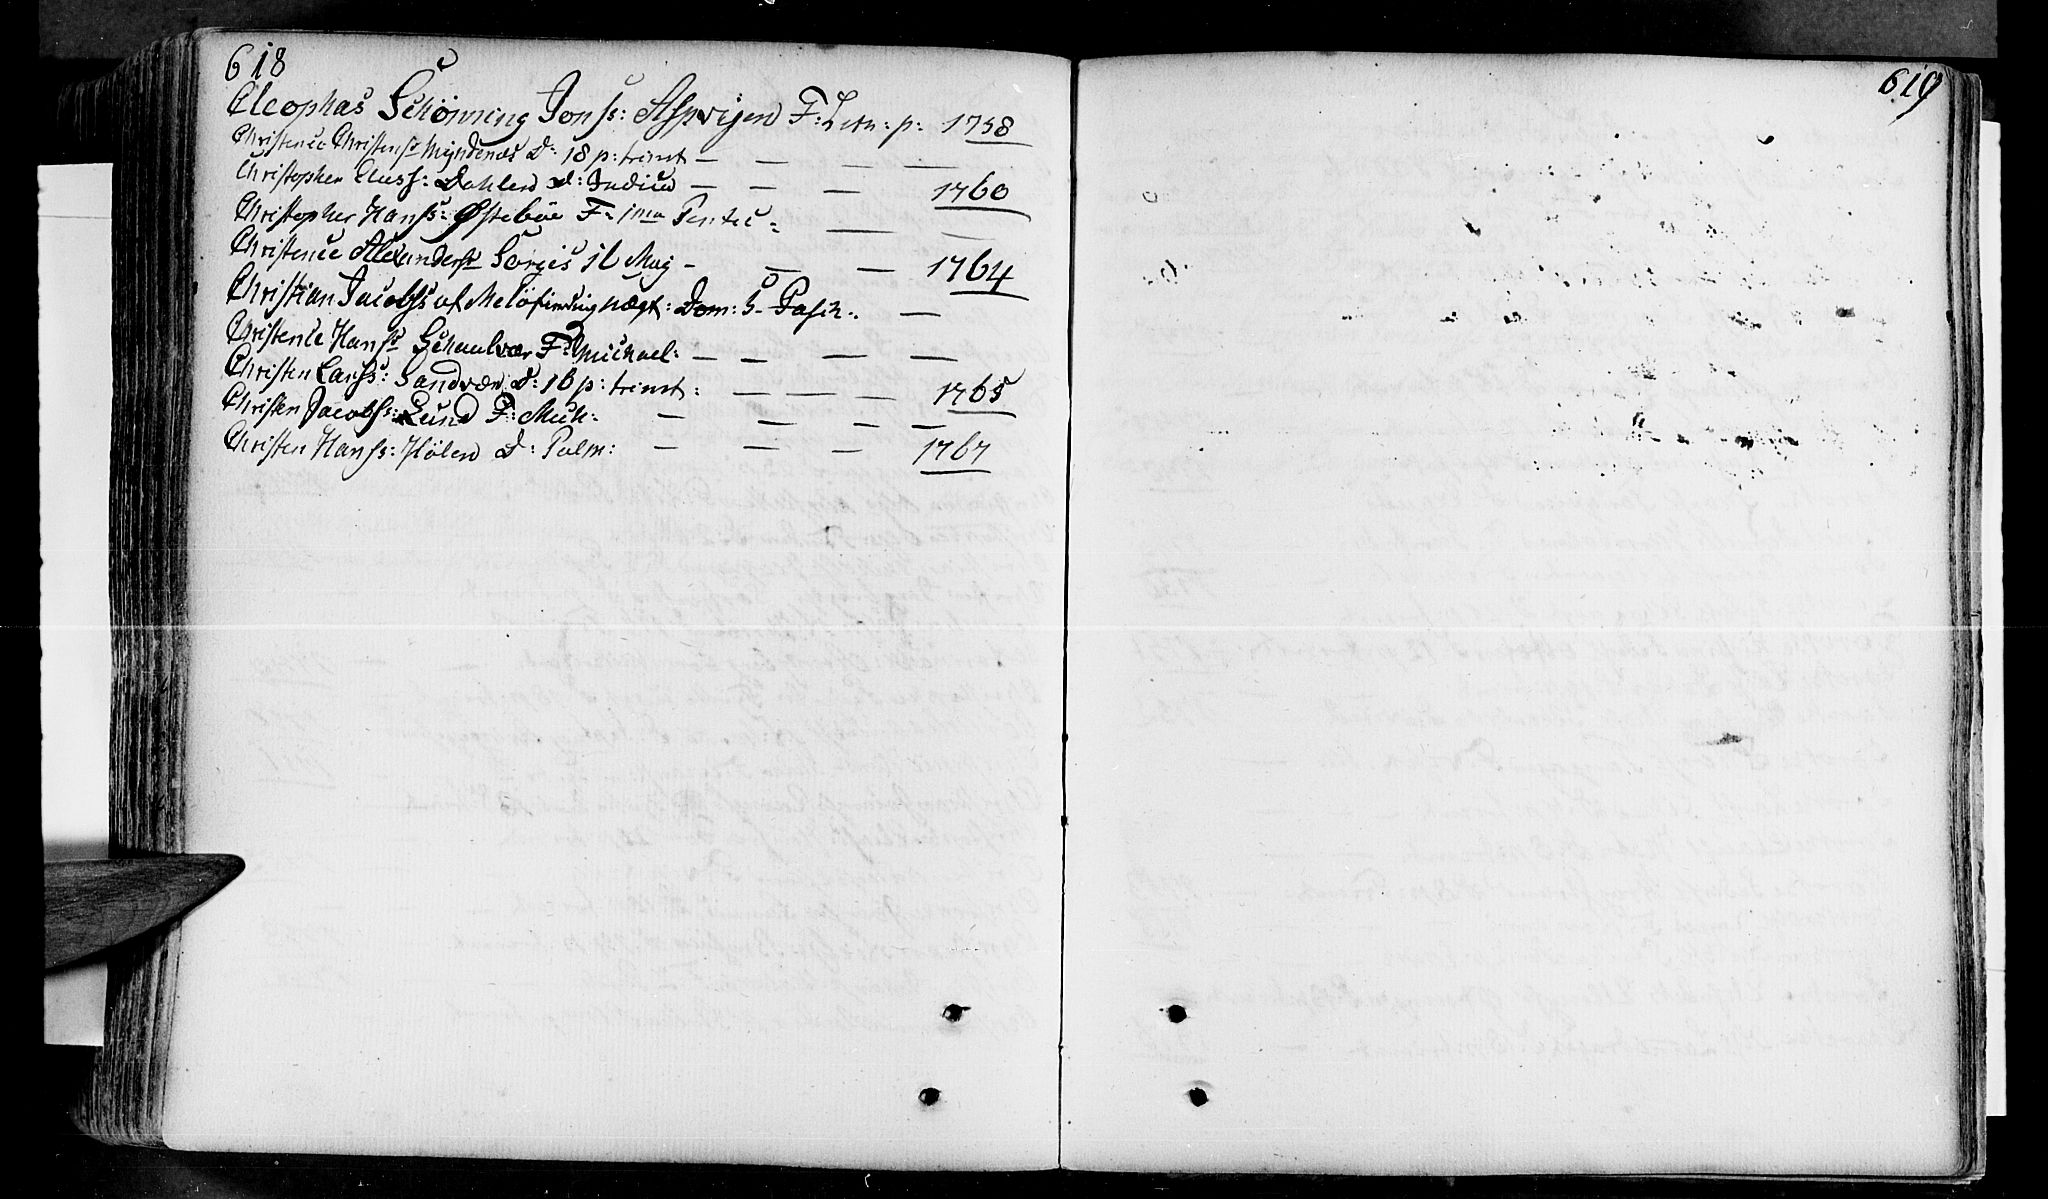 618
Cleophas Schönning Jonss: Aspvigen F: Letn: p: 1758
Christence Christensdr Myndenæs D: 18 p: trinit — — — —
Christopher Clauss: Dahlen D: Judica — — — 1760
Christopher Hanss: Østebøe F: 1ma Pentec: — —
Christence Alexandersdr Sörgis 16 Maj — — — 1764
Christian Jacobss af Meløe Dom: 5 Pasch: —
Christence Hansdr Schaalvær F: Michael: — — — —
Christen Larss: Sandvær D: 16 p: trinit: — — — 1765
Christen Jacobss: Lund F: Mich: — — — —
Christen Hanss: Hølen D: Palm: — — — 1767
619